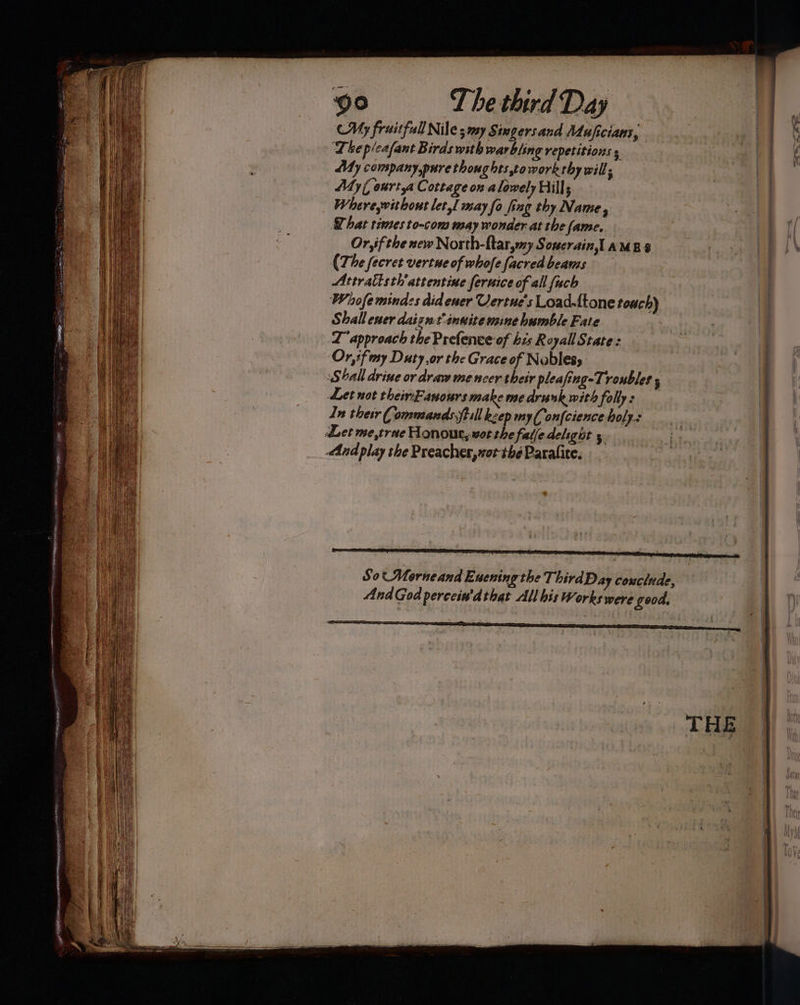 90 The third Day
My fruitfull Nile; my Singers and Musicians,
The pleasant Birds with warbling repetitions;
My company, pure thoughts, to work thy will;
My Court, a Cottage on a lowely Hill;
Where, without let, I may so sing thy Name,
That times to-com may wonder at the same.
Or, if the new North-star, my Souerain, IAMES
(The secret vertue of whose sacred beams
Attracts th'attentiue seruice of all such
Whose mindes did euer Vertue's Load-stone touch)
Shall euer daign t'inuite mine humble Fate
T'approach the Presence of his Royall State:
Or, if my Duty, or the Grace of Nobles,
Shall driue or draw me neer their pleasing-Troubles;
Let not their Fauours make me drunk with folly:
In their Commands, still keep my Conscience holy:
Let me, true Honour, not the false delight;
And play the Preacher, not the Parasite.
So Morne and Euening the Third Day conclude,
And God perceiu'd that All his Works were good.
THE